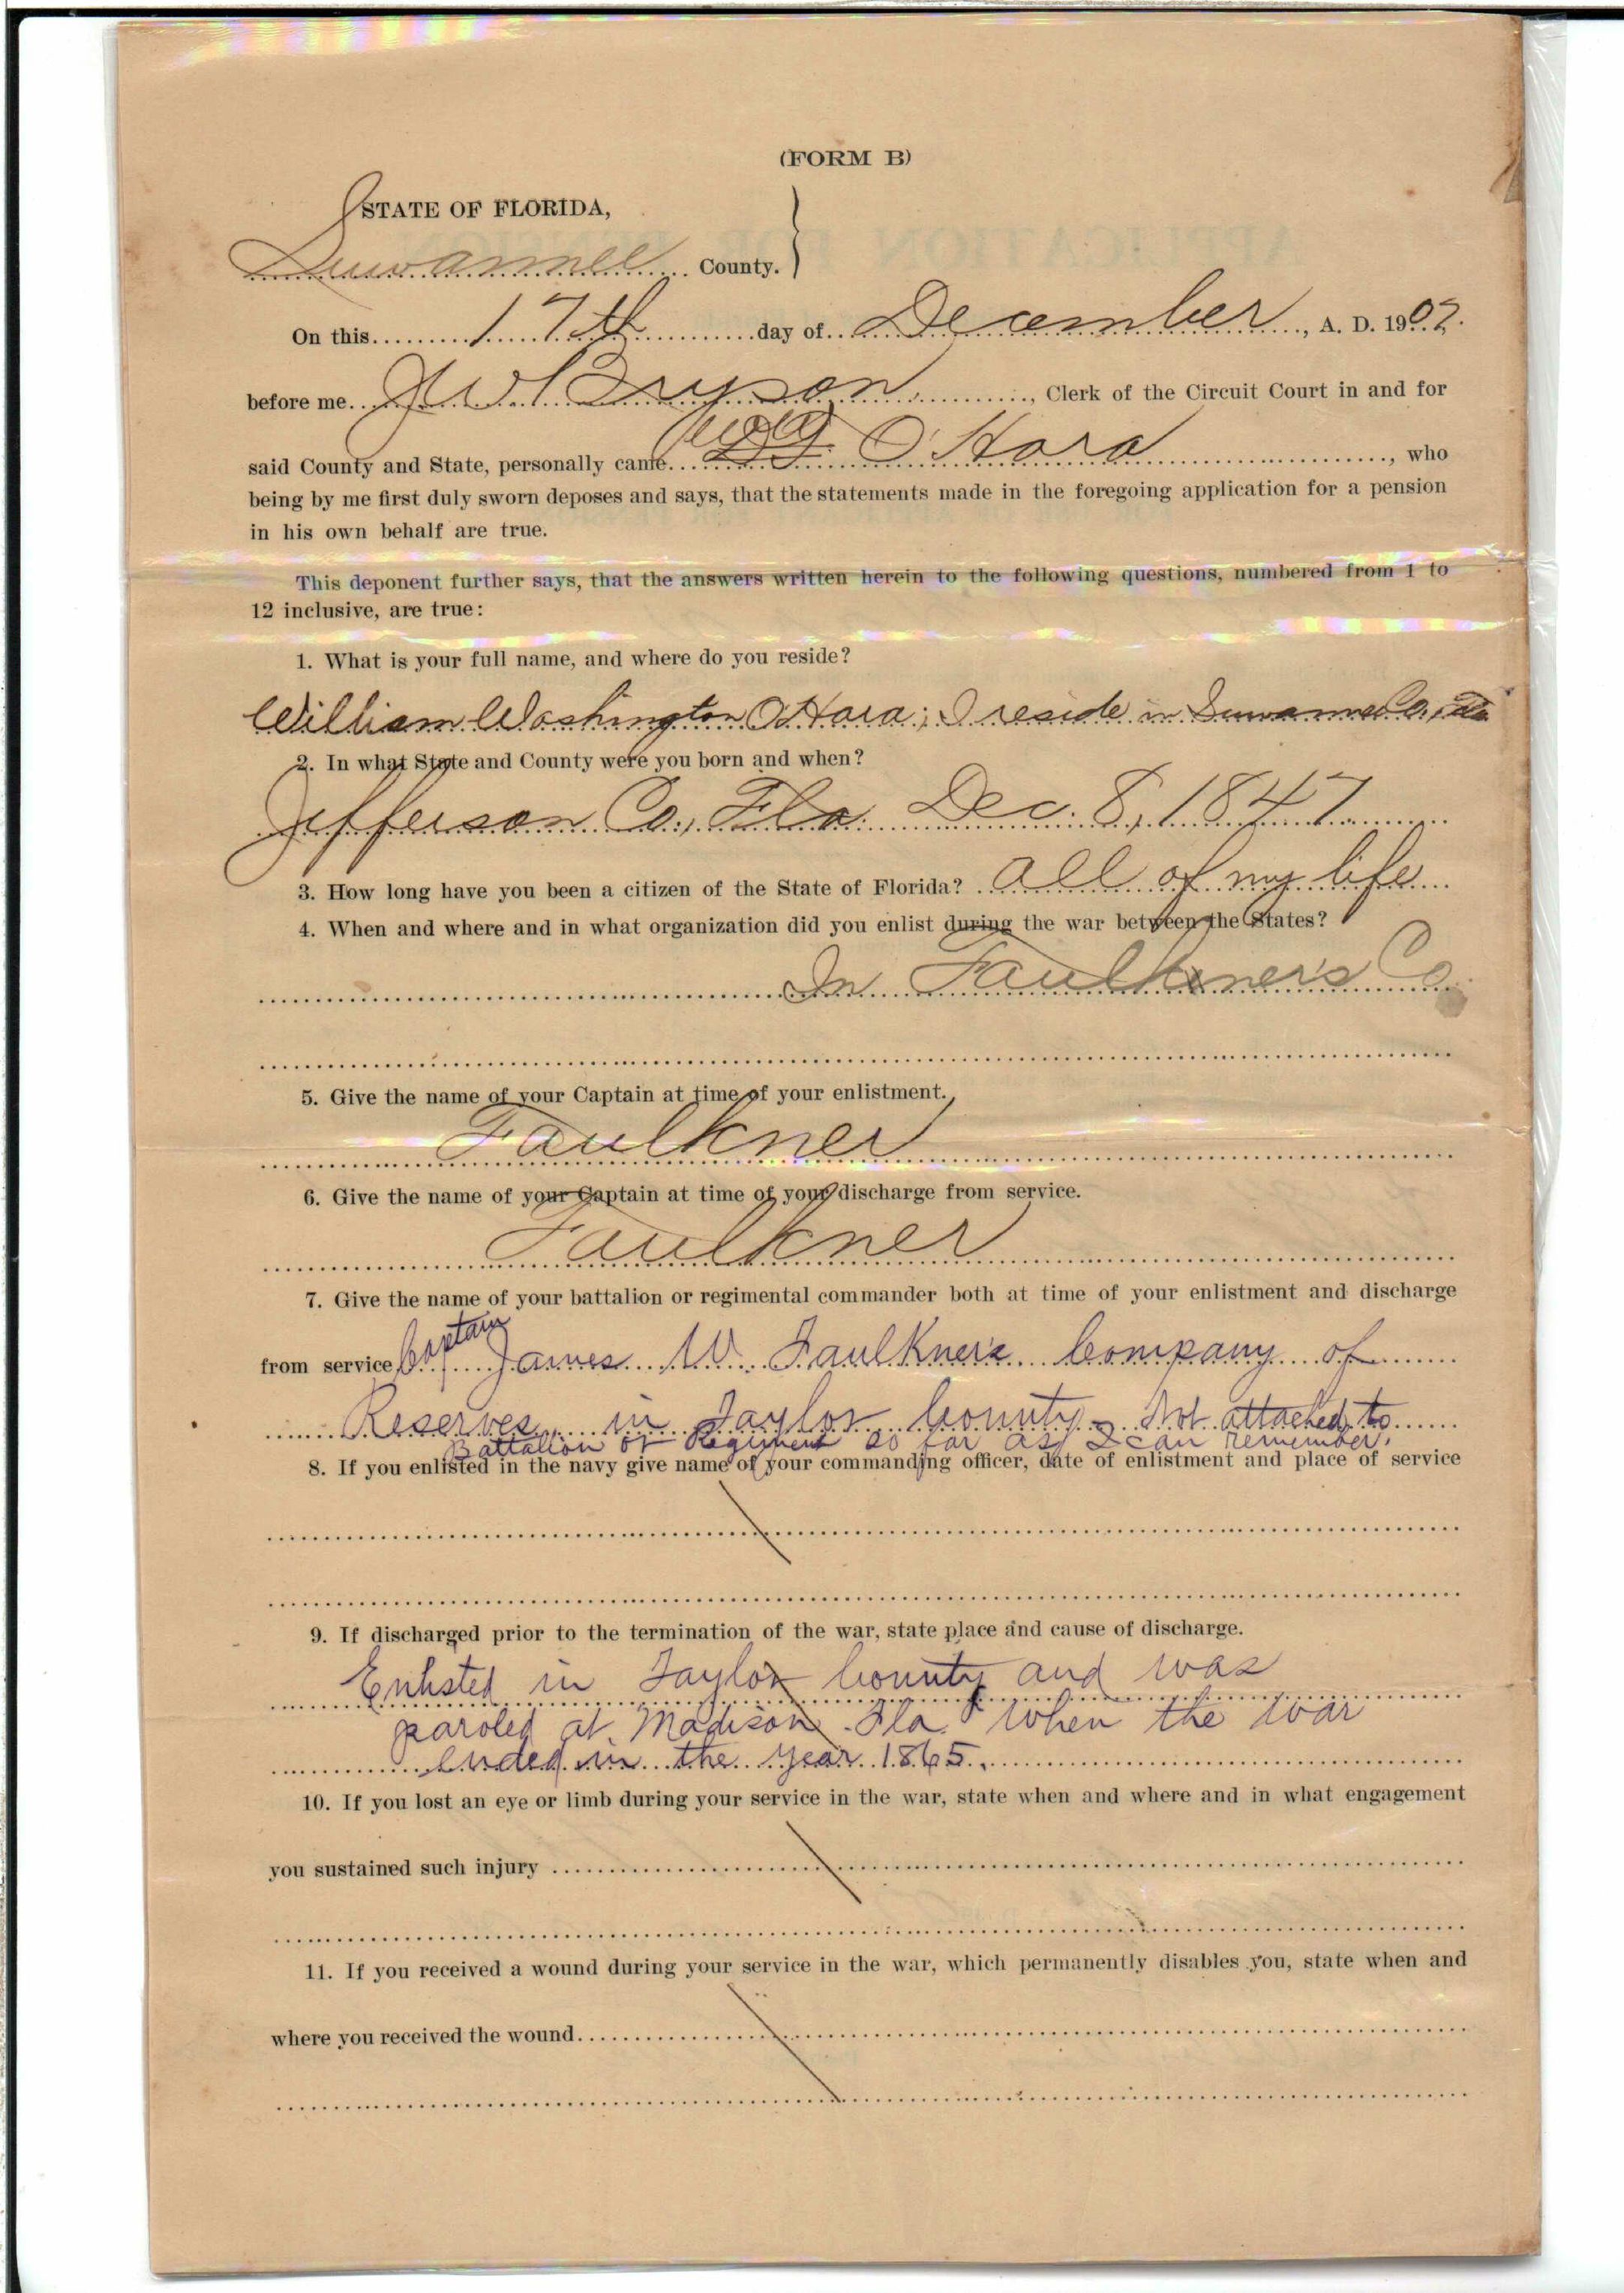 (FORM B)
STATE OF FLORIDA,
Suwannee County.
On this 17th day of December, A. D. 1907.
before me J W Bryson, Clerk of the Circuit Court in and for
said County and State, personally came O'Hara, who
being by me first duly sworn deposes and says, that the statements made in the foregoing application for a pension
in his own behalf are true.
This deponent further says, that the answers written herein to the following questions, numbered from 1 to
12 inclusive, are true:
1. What is your full name, and where do you reside?
William Washington O'Hara; I reside in Suwannee Co., Fla
2. In what State and County were you born and when?
Jefferson Co., Fla. Dec. 8, 1847
3. How long have you been a citizen of the State of Florida? all of my life
4. When and where and in what organization did you enlist during the war between the States?
In Faulkner's Co.
5. Give the name of your Captain at time of your enlistment.
Faulkner
6. Give the name of your Captain at time of your discharge from service.
Faulkner
7. Give the name of your battalion or regimental commander both at time of your enlistment and discharge
from service Captain James W. Faulkner's Company of
Reserves in Taylor County - Not attached to
Battalion or Regiment so far as I can remember.
8. If you enlisted in the navy give name of your commanding officer, date of enlistment and place of service
9. If discharged prior to the termination of the war, state place and cause of discharge.
Enlisted in Taylor County and was
paroled at Madison Fla when the war
ended in the year 1865.
10. If you lost an eye or limb during your service in the war, state when and where and in what engagement
you sustained such injury
11. If you received a wound during your service in the war, which permanently disables you, state when and
where you received the wound